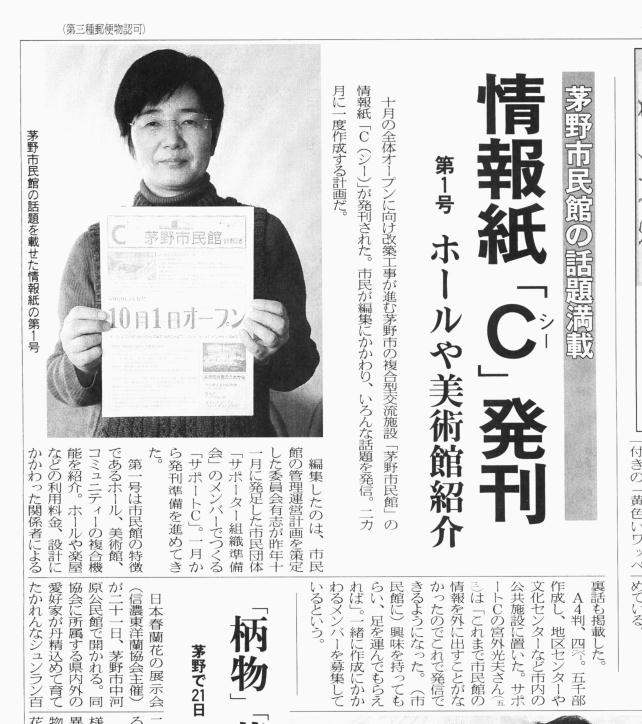 (第三種郵便物認可)
茅野市民館の話題満載
情報紙「C」発刊
シー
第1号 ホールや美術館紹介
十月の全体オープンに向け改築工事が進む茅野市の複合型交流施設「茅野市民館」の
情報紙「C(シー)」が発刊された。市民が編集にかかわり、いろんな話題を発信。二カ
月に一度作成する計画だ。
C 茅野市民館
10月1日オープン
茅野市民館の話題を載せた情報紙の第1号
編集したのは、市民
館の管理運営計画を策定
した委員会有志が昨年十
一月に発足した市民団体
「サポーター組織準備
会」のメンバーでつくる
「サポートC」。一月か
ら発刊準備を進めてき
た。
第一号は市民館の特徴
であるホール、美術館、
コミュニティーの複合機
能を紹介。ホールや楽屋
などの利用料金、設計に
かかわった関係者による
裏話も掲載した。
A4判、四㌻。五千部
作成し、地区センターや
文化センターなど市内の
公共施設に置いた。サポ
ートCの宮外光夫さん
は「これまで市民館の
情報を外に出すことがな
かったのでこれで発信で
きるようになった。(市
民館に)興味を持っても
らい、足を運んでもらえ
れば。一緒に作成にかか
わるメンバーを募集して
いるという。
「柄物」
茅野で21日
日本春蘭花の展示会
(信濃東洋蘭協会主催)
が二十一日、茅野市中河
原公民館で開かれる。同
協会に所属する県内外の
愛好家が丹精込めて育て
たかれんなシュンラン百
付きの
黄色いワッペ
めている